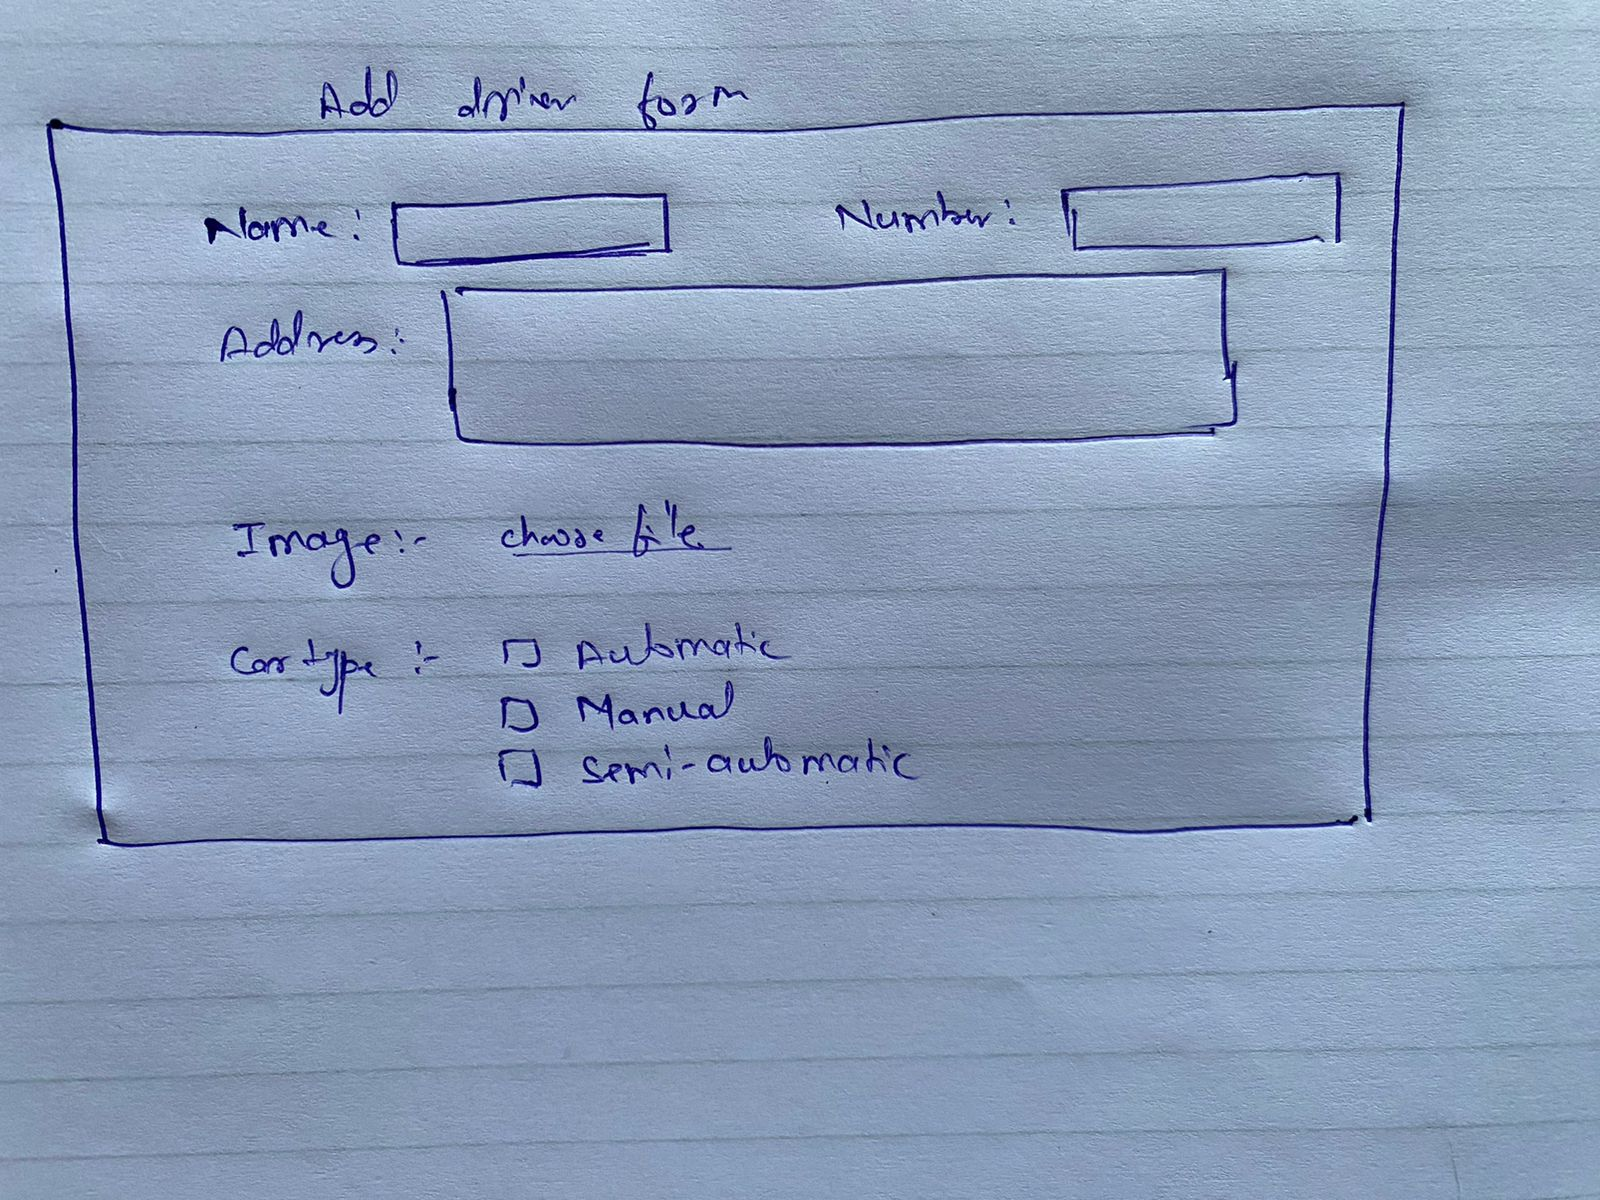 Add driver form
Name: Number:
Address:
Image:- choose file
Car type :- Automatic
Manual
semi-automatic